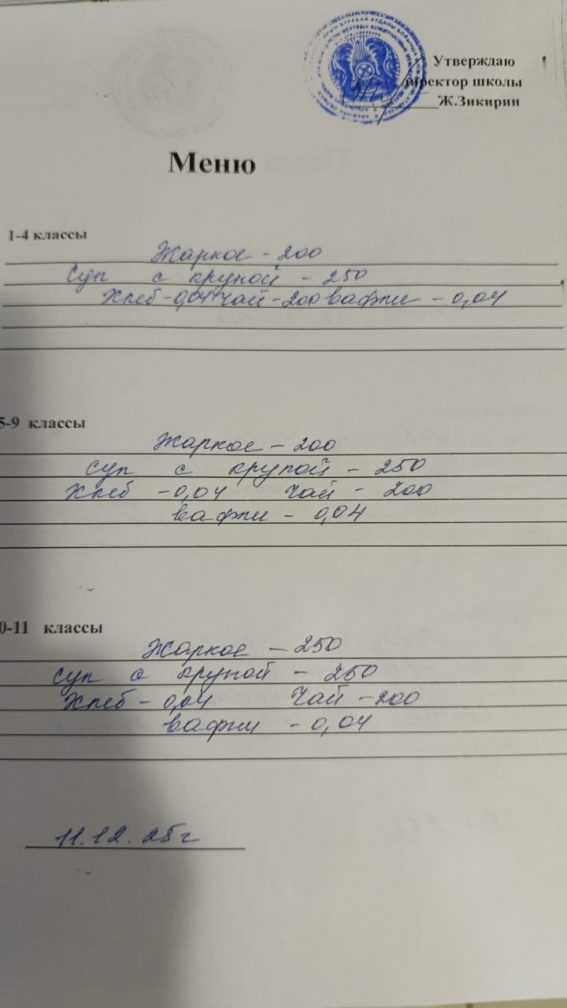 Утверждаю
директор школы
Ж.Зикирин
Меню
1-4 классы
Жаркое - 200
Суп с крупой - 250
Хлеб - 0,04 чай - 200 вафли - 0,04
5-9 классы
Жаркое - 200
Суп с крупой - 250
Хлеб - 0,04 чай - 200
вафли - 0,04
0-11 классы
Жаркое - 250
Суп с крупой - 250
Хлеб - 0,04 Чай - 200
вафли - 0,04
11.12.25г